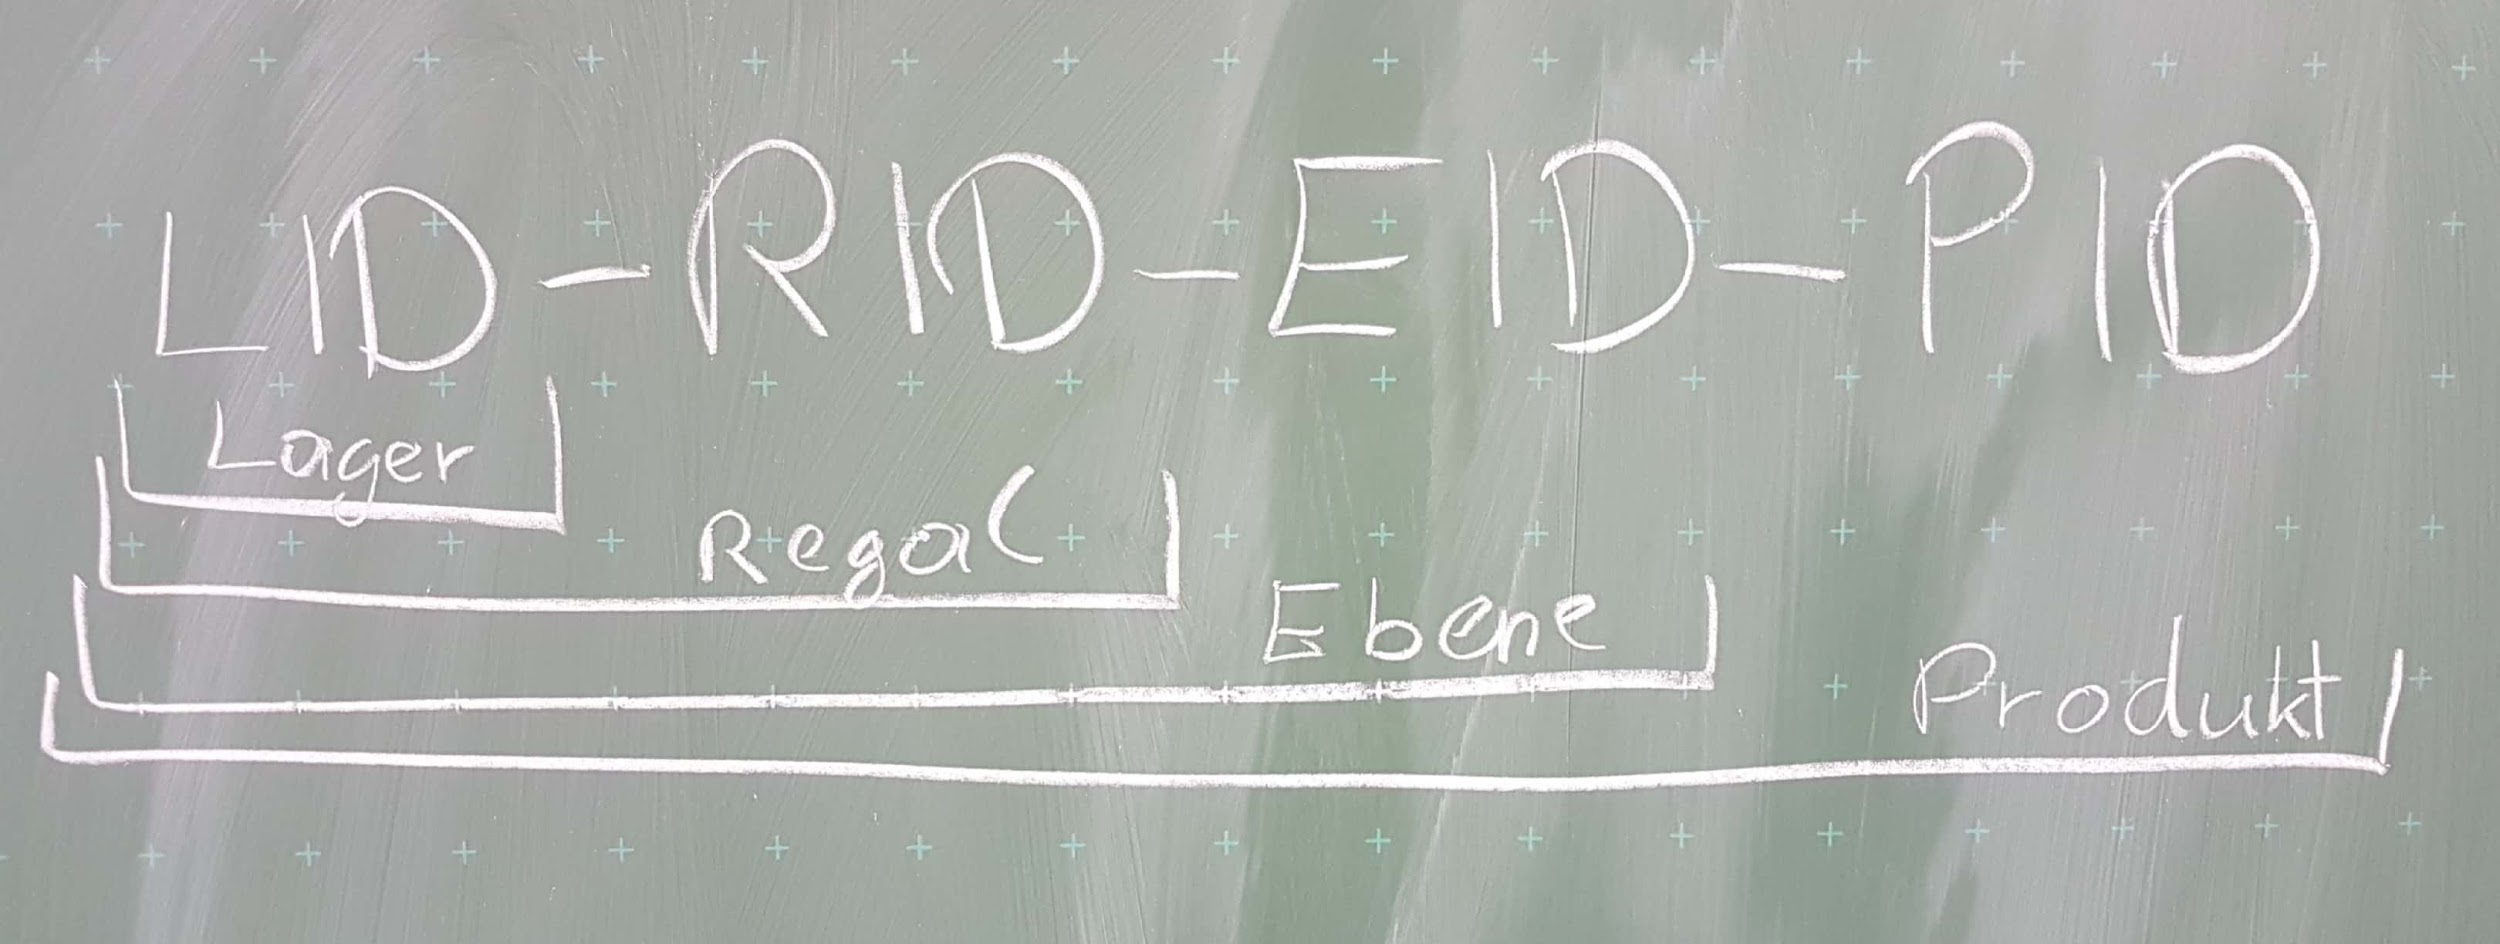 LID-RID-EID-PID
Lager
Regal
Ebene
Produkt